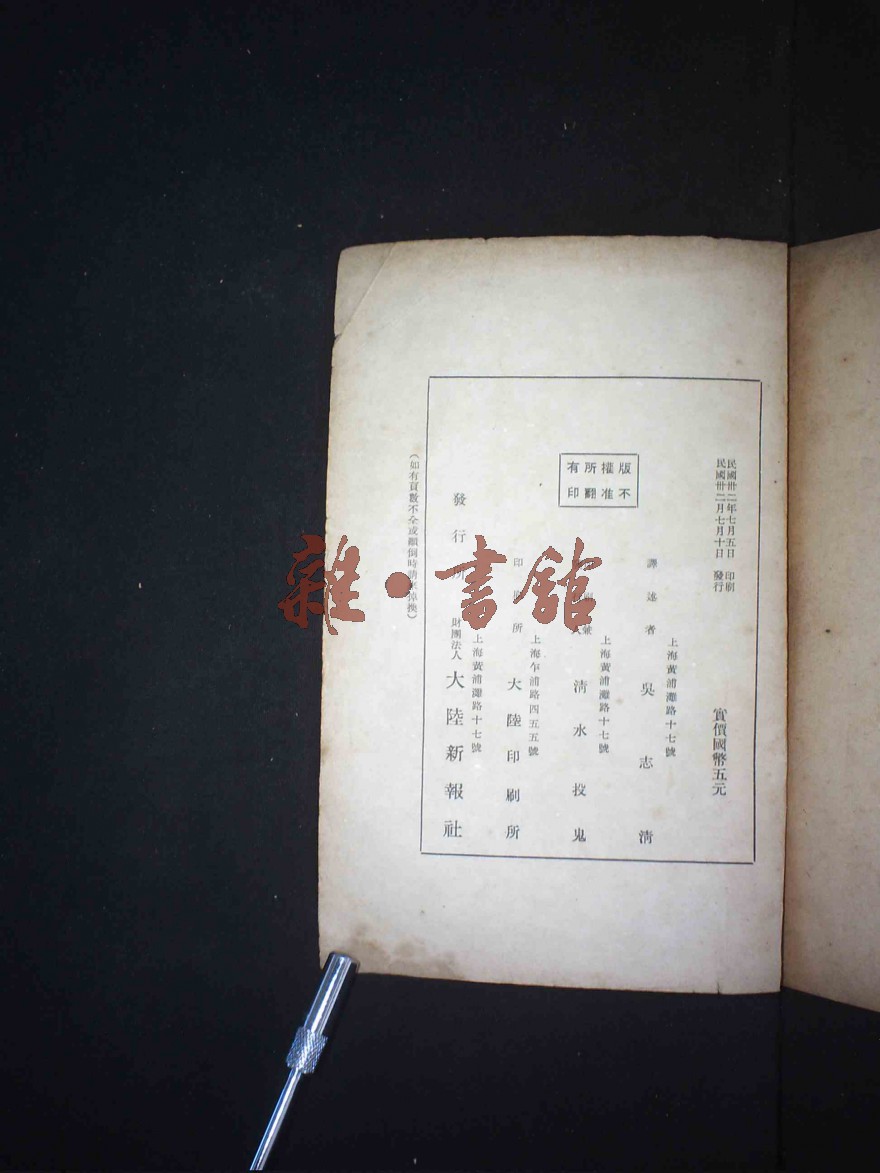 民國卅二年七月五日 印刷
民國卅二月七月十日 發行
實價國幣五元
版權所有
不准翻印
上海黃浦灘路十七號
譯述者 吳志清
上海黃浦灘路十七號
清水投鬼
上海乍浦路四五五號
印刷所 大陸印刷所
上海黃浦灘路十七號
發行所 財團法人 大陸新報社
(如有頁數不全或顛倒時請 掉換)
雜·書館